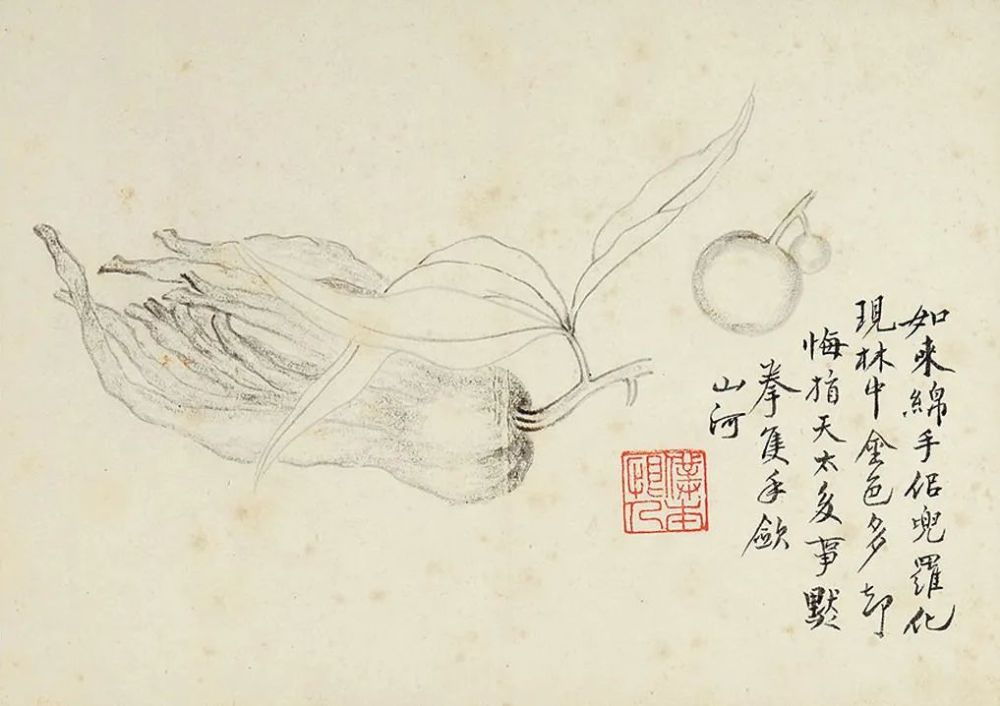 如來綿手佀兜羅化
現林中金色多却
悔指天太多事默
拳隻手斂
山河
僕本
恨人